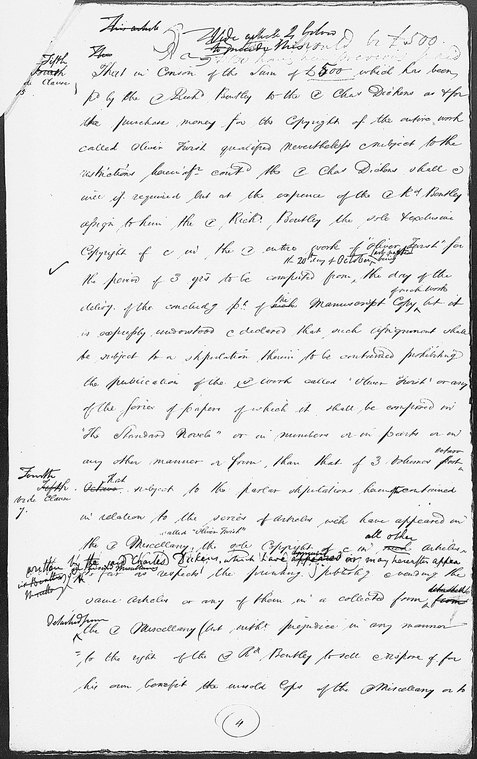 This article
Vide article 2 below
to preclude this would be £500
Fifth
Fourth
Clause
That in Conson of the Sum of £500 which has been
pd by the Richd Bentley to the Chas Dickens as & for
the purchase money for the Copyright of the entire work
called Oliver Twist qualified nevertheless & subject to the
restrictions hereinafr contd the Chas Dickens shall &
will if required but at the expence of the Rd Bentley
assign to him the Richd Bentley the sole & exclusive
Copyright of & in the entire work of "Oliver Twist" for
the 20th day of October
the period of 3 yrs to be computed from the day of the
of such work
delivy of the concludg pt of the Manuscript Copy but it
is expressly understood & declared that such assignment shall
be subject to a stipulation therein to be contained prohibiting
the publication of the work called 'Oliver Twist' or any
of the series of papers of which it shall be composed in
"The Standard Novels" or in numbers or in parts or in
any other manner or form, than that of 3 Volumes octavo
Fourth
Fifth
vide Clause
7.
Octavo that subject to the stipulations contained
in relation to the series of Articles wch have appeared in
called "Oliver Twist"
all other
the Miscellany, the sole Copyright of & in such articles
written by the said Charles Dickens, which have appeared or may hereafter appear
in Bentley's Miscellany
so far as respects the printing publishg & vending the
same articles or any of them in a collected form
detached from
the Miscellany (but witht prejudice in any manner
to the right of the Rd Bentley to sell & dispose of for
his own benefit the unsold Cops of the Miscellany or to
4